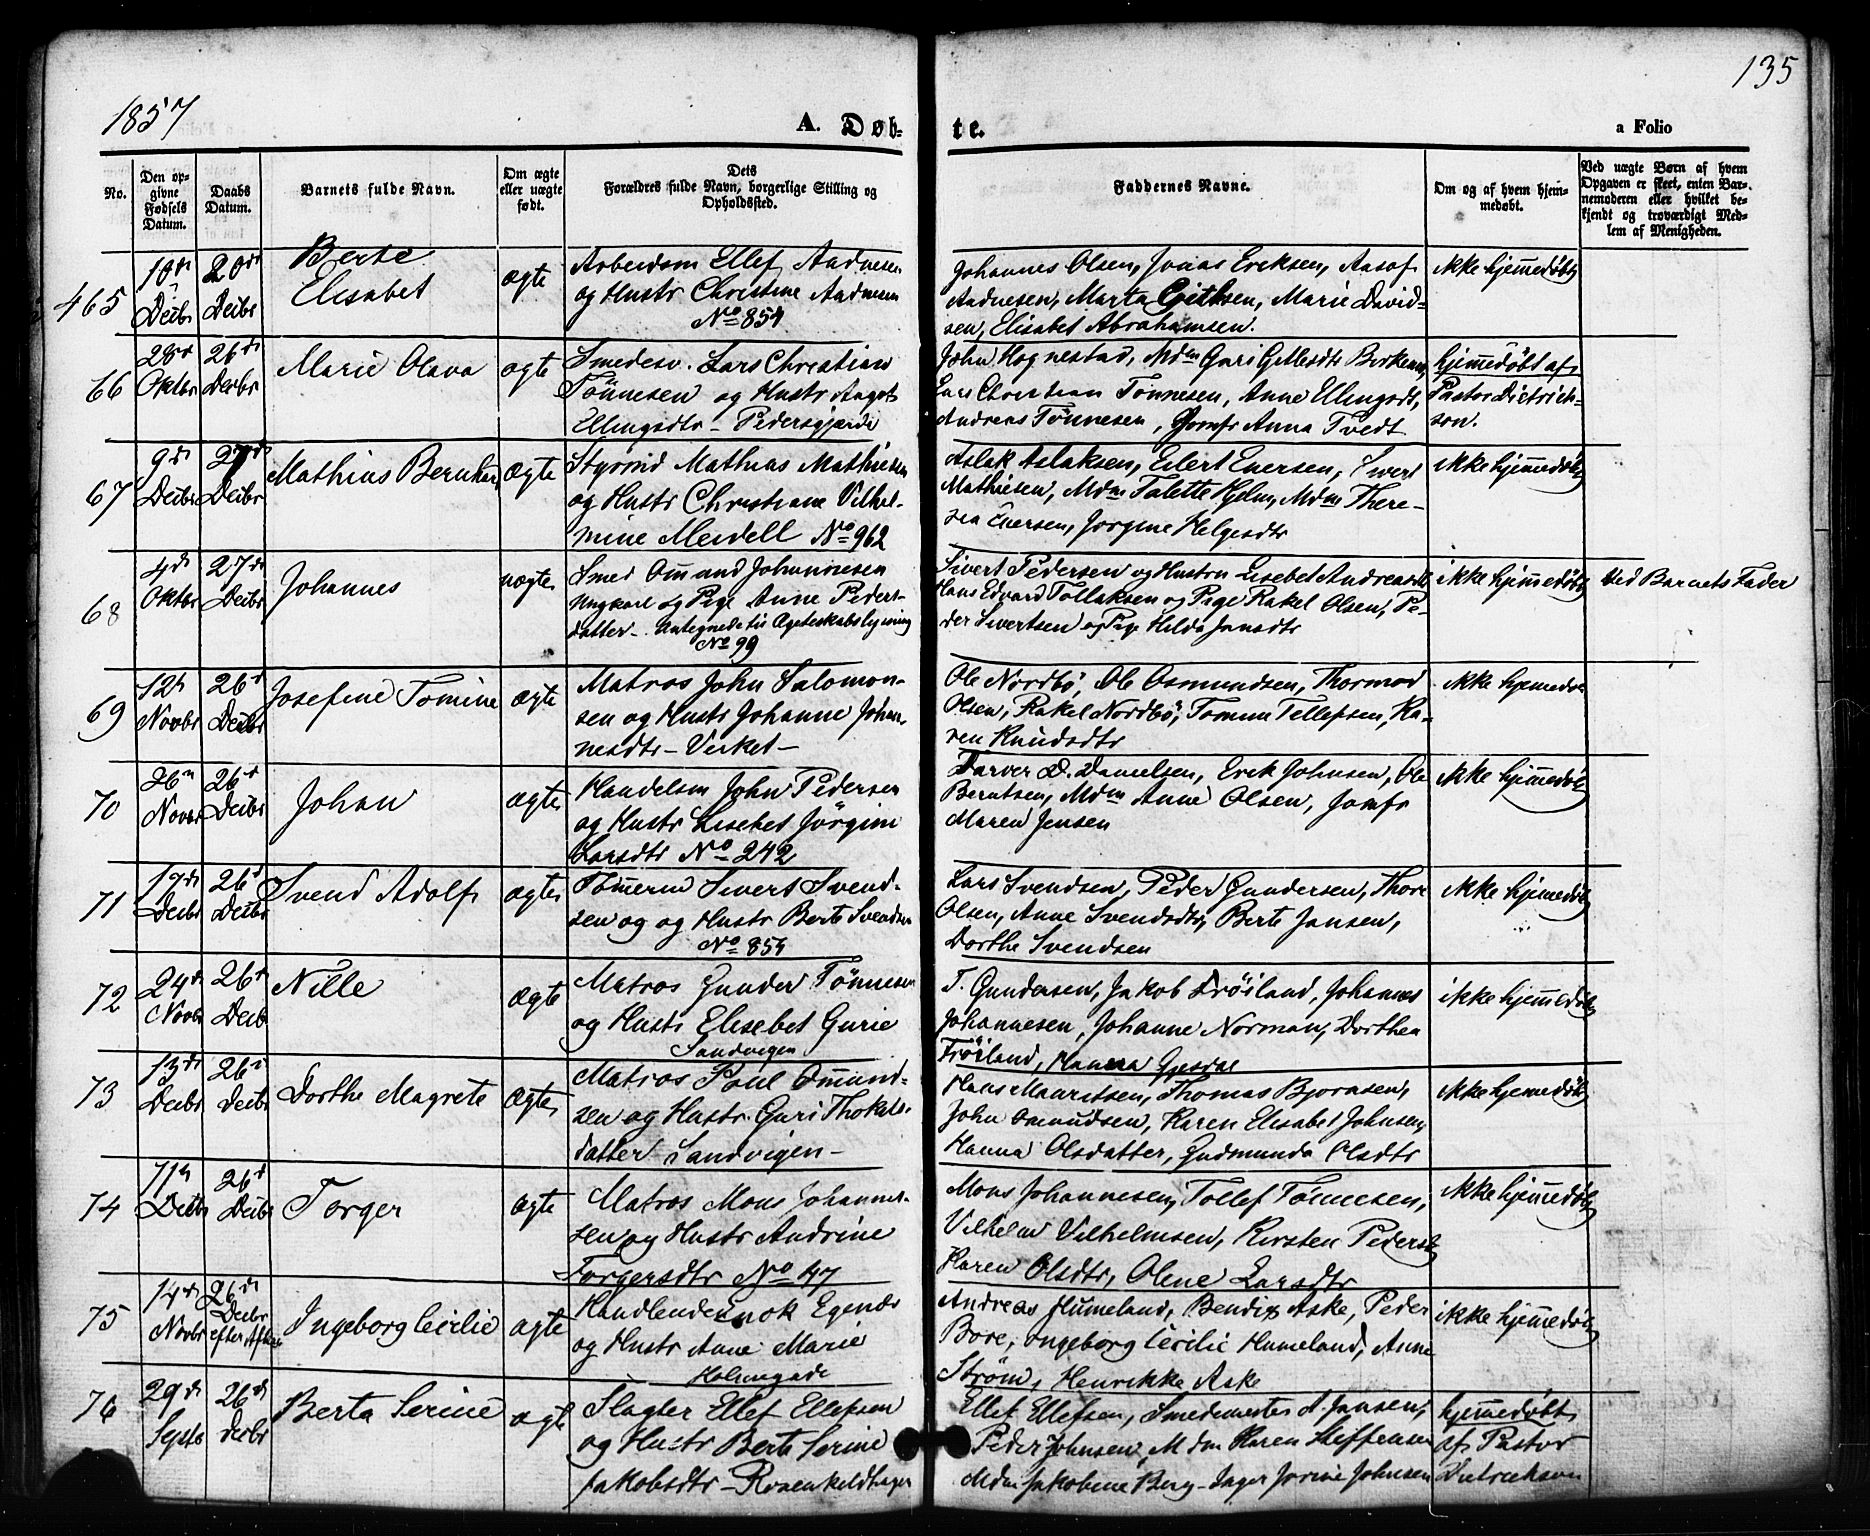 135
1857
A. Døb-
te.
a Folio
No.
Den op-
givne
Fødsels
Datum.
Daabs
Datum.
Barnets fulde Navn.
Om ægte
eller uægte
født.
Dets
Forældres fulde Navn, borgerlige Stilling og
Opholdssted.
Faddernes Navne.
Om og af hvem hjem-
medøbt.
Ved uægte Børn af hvem
Opgaven er skeet, enten Bar-
nemoderen eller hvilket be-
kjendt og troværdigt Med-
lem af Menigheden.
465
10de Decbr
20de Decbr
Berte
Elisabet
ægte
Arbeidsm Ellef Aadnesen
og Hustr Christine Aadnesen
No 854
Johannes Olsen, Jonas Eriksen, Aasof
Aadnesen, Marta Eriksen, Marie David-
sen, Elisabet Abrahamsen.
ikke hjemmedøbt
66
28de Oktbr
26de Decbr
Marie Olava
ægte
Smedesv. Lars Christian
Tönnesen og Hustr Aagot
Ellingsdtr - Pedersgjærde
John Hognestad, Mdm Guri Birkeum,
Lars Christian Tönnesen, Anne Ellingsdt,
Andreas Tönnesen, Jomfr Anna Tvedt
hjemmedøbt af
Pastor Dietrich-
son.
67
9de Decbr
27de Decbr
Mathias Bernhard
ægte
Styrmd Mathias Mathiesen
og Hustr Christiane Vilhel-
mine Meidell No 962
Aslak Aslaksen, Eilert Eversen, Sivert
Mathiesen, Mdm Talette Hjelm, Mdm There-
sea Eversen, Jorgine Helgesdtr
ikke hjemmedøbt
68
4de Oktbr
27de Decbr
Johannes
uægte
Smed Omund Johannesen
Ungkarl og Pige Anne Peders-
datter -. Antegnede til Ægteskabslysning
No 99
Sivert Pedersen og Hustru Lisebet Andreasdt
Hans Edvard Tollaksen og Pige Rakel Olsen, Pe-
der Sivertsen og Pige Hilda Jansdtr
ikke hjemmedøbt
Ved Barnets Fader
69
12te Novbr
26de Decbr
Josefine Tomine
ægte
Matros John Salomon-
sen og Hustr Johanne Johan-
nesdtr - Verket -
Ole Nordbö, Ole Osmundsen, Thormod
Olsen, Rakel Nordbö, Tomine Tellefsen, Ka-
ren Knudsdtr
ikke hjemmedøbt
70
26de Novbr
26de Decbr
Johan
ægte
Handelsm John Pedersen
og Hustr Lisebet Jörgine
Larsdtr No 242
Farver D. Danielsen, Erik Johnsen, Ole
Berntsen, Mdm Anne Olsen, Jomfr
Maren Jensen
ikke hjemmedøbt
71
17de Decbr
26de Decbr
Svend Adolf
ægte
Tömmermd Sivert Svend-
sen og og Hustr Berte Svendsen
No 854
Lars Svendsen, Peder Gundersen, Thore
Olsen, Anne Svendsdtr, Berte Jansen,
Dorthe Svendsen
ikke hjemmedøbt
72
24de Novbr
26de Decbr
Nille
ægte
Matros Gunder Tönnesen
og Hustr Elisebet Gurie
Sandvigen
T. Gundersen, Jakob Fröiland, Johannes
Johannesen, Johanne Norman, Dorthea
Fröiland, Hanna Gjesdal
ikke hjemmedøbt
73
13de Decbr
26de Decbr
Dorthe Magrete
ægte
Matros Poul Omund-
sen og Hustr. Guri Thokels-
datter Sandvigen -
Hans Mauritsen, Thomas Bjornsen,
John Omundsen, Karen Elisabet Johnsen,
Hanna Olsdatter, Gudmunda Olsdtr
ikke hjemmedøbt
74
11te Decbr
26de Decbr
Torger
ægte
Matros Mons Johannes-
sen og Hustr Andrine
Torgersdtr No 47
Mons Johannesen, Tollef Tönnesen,
Vilhelm Vilhelmsen, Kirsten Pedersdt
Karen Olsdtr, Olene Larsdtr
ikke hjemmedøbt
75
14de Novbr
26de Decbr
efter Aften
Ingeborg Cecilie
ægte
Handlende Enok Egenæs
og Hustr Anne Marie
Holmegade
Andreas Humeland, Bendix Aske, Peder
Bore, Ingeborg Cecilie Humeland, Anne
Ström, Henrikke Aske
ikke hjemmedøbt
76
29de Septb
26de Decbr
Berta Serine
ægte
Slagter Ellef Ellefsen
og Hustr Berte Serine
Jakobsdtr - Rosenkildhagen
Ellef Ellefsen, Smedemester A. Jansen,
Peder Johnsen, Mdm Karen Steffensen
Mdm Jakobine Berg - Inger Jorine Johnsen
hjemmedøbt
af Pastor
Dietrichson